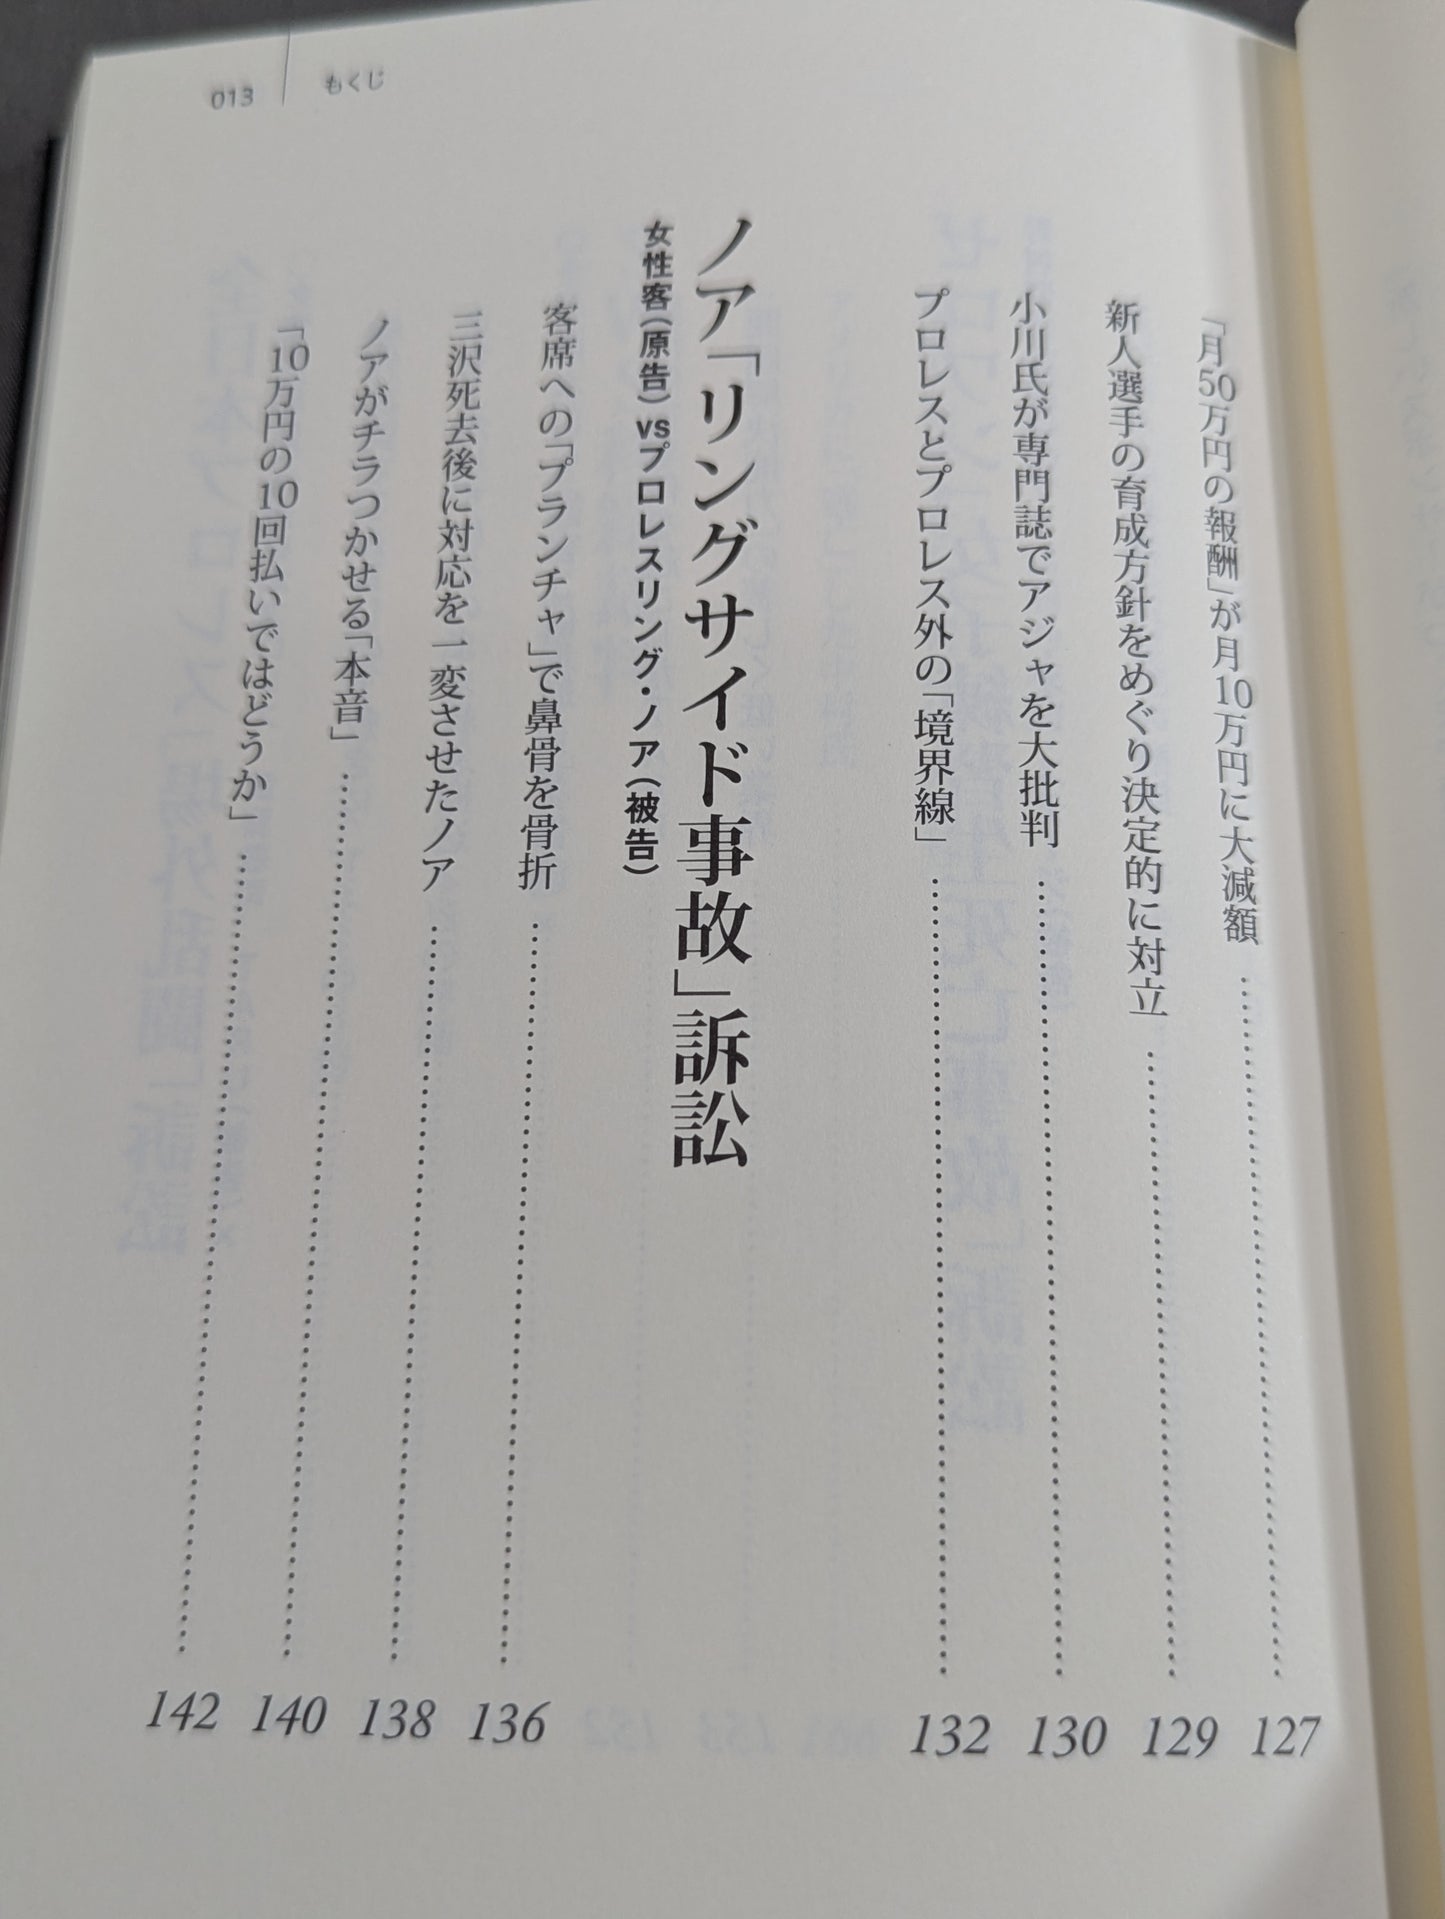 013 もくじ
「月50万円の報酬」が月10万円に大減額 127
新人選手の育成方針をめぐり決定的に対立 129
小川氏が専門誌でアジャを大批判 130
プロレスとプロレス外の「境界線」 132
ノア「リングサイド事故」訴訟
女性客(原告)vsプロレスリング・ノア(被告)
客席への「プランチャ」で鼻骨を骨折 136
三沢死去後に対応を一変させたノア 138
ノアがチラつかせる「本音」 140
「10万円の10回払いではどうか」 142